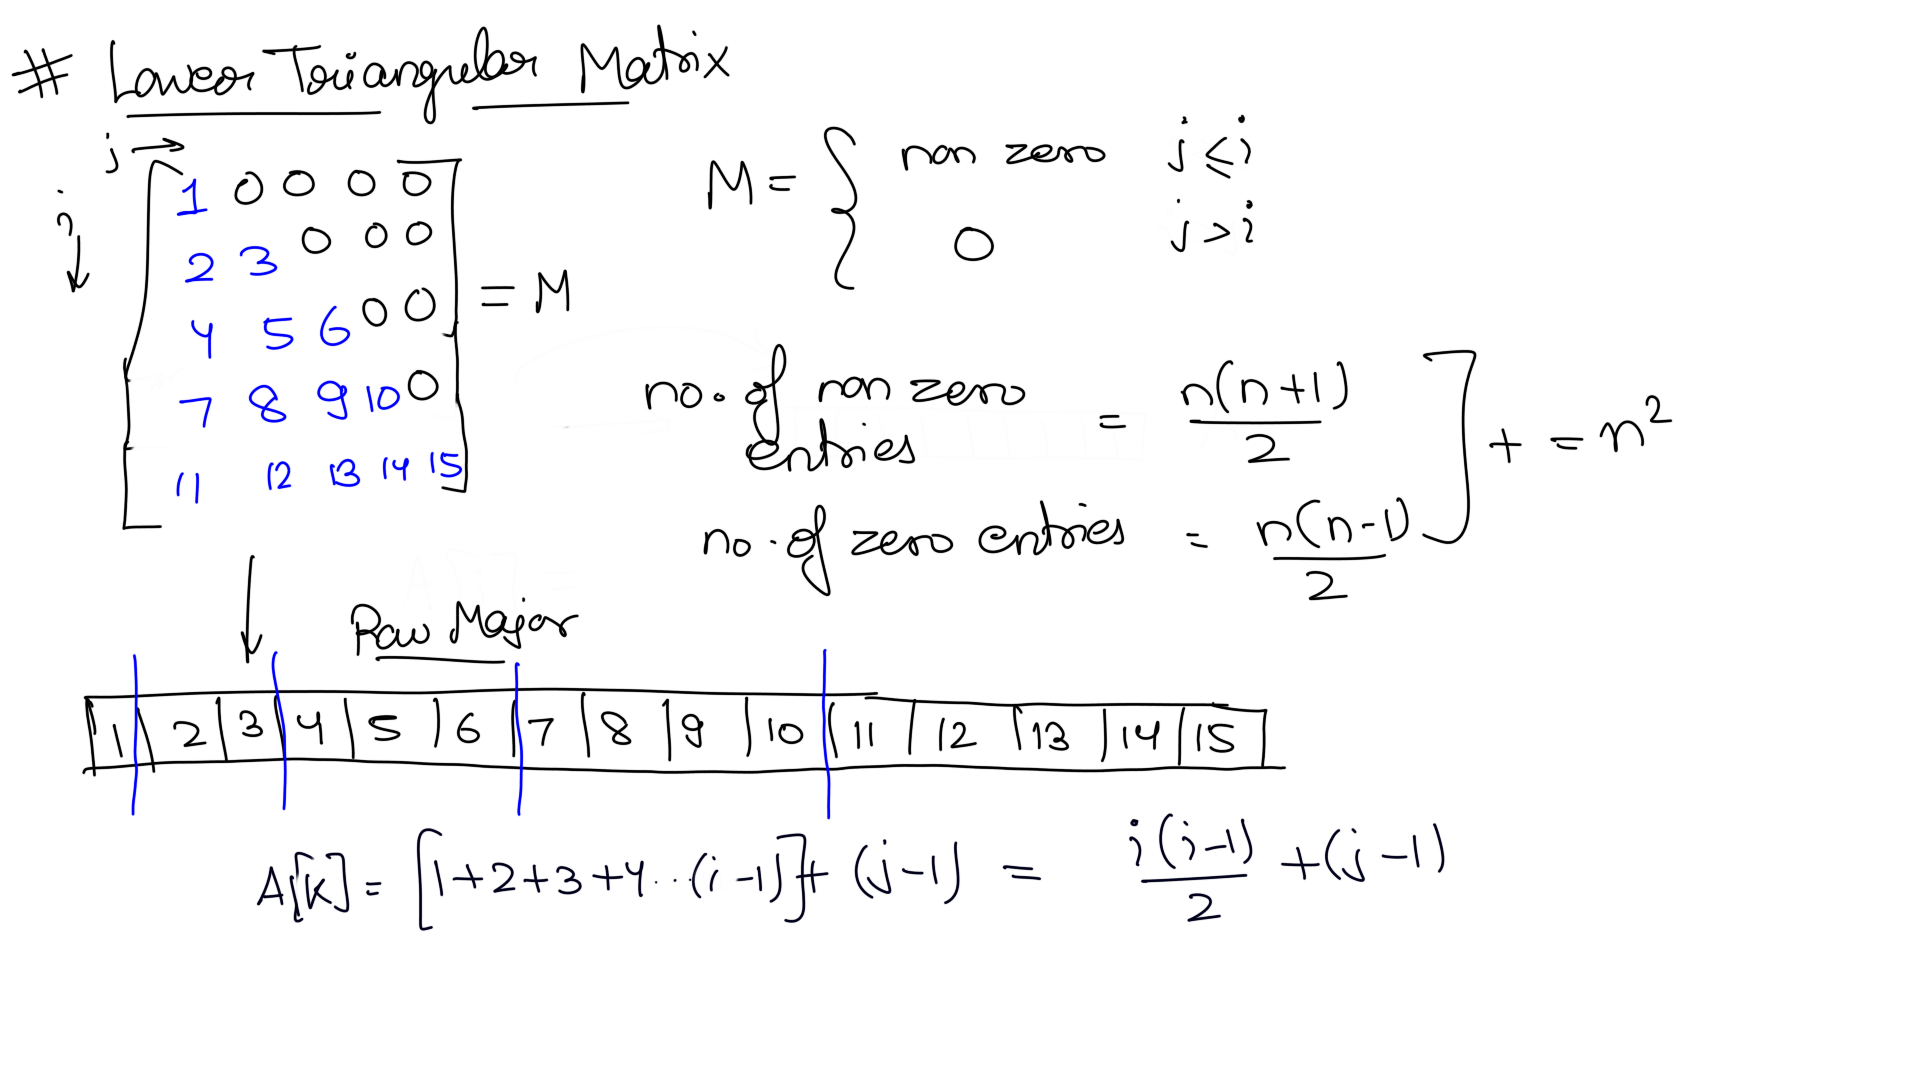 # Lower Triangular Matrix
j →
i ↓
1 0 0 0 0
2 3 0 0 0
4 5 6 0 0
7 8 9 10 0
11 12 13 14 15
= M
M = { non zero j ≤ i
0 j > i
no. of non zero entries = n(n+1)/2
no. of zero entries = n(n-1)/2
] + = n²
Row Major
1 | 2 | 3 | 4 | 5 | 6 | 7 | 8 | 9 | 10 | 11 | 12 | 13 | 14 | 15
A[K] = [1+2+3+4..(i-1)] + (j-1) = i(i-1)/2 + (j-1)